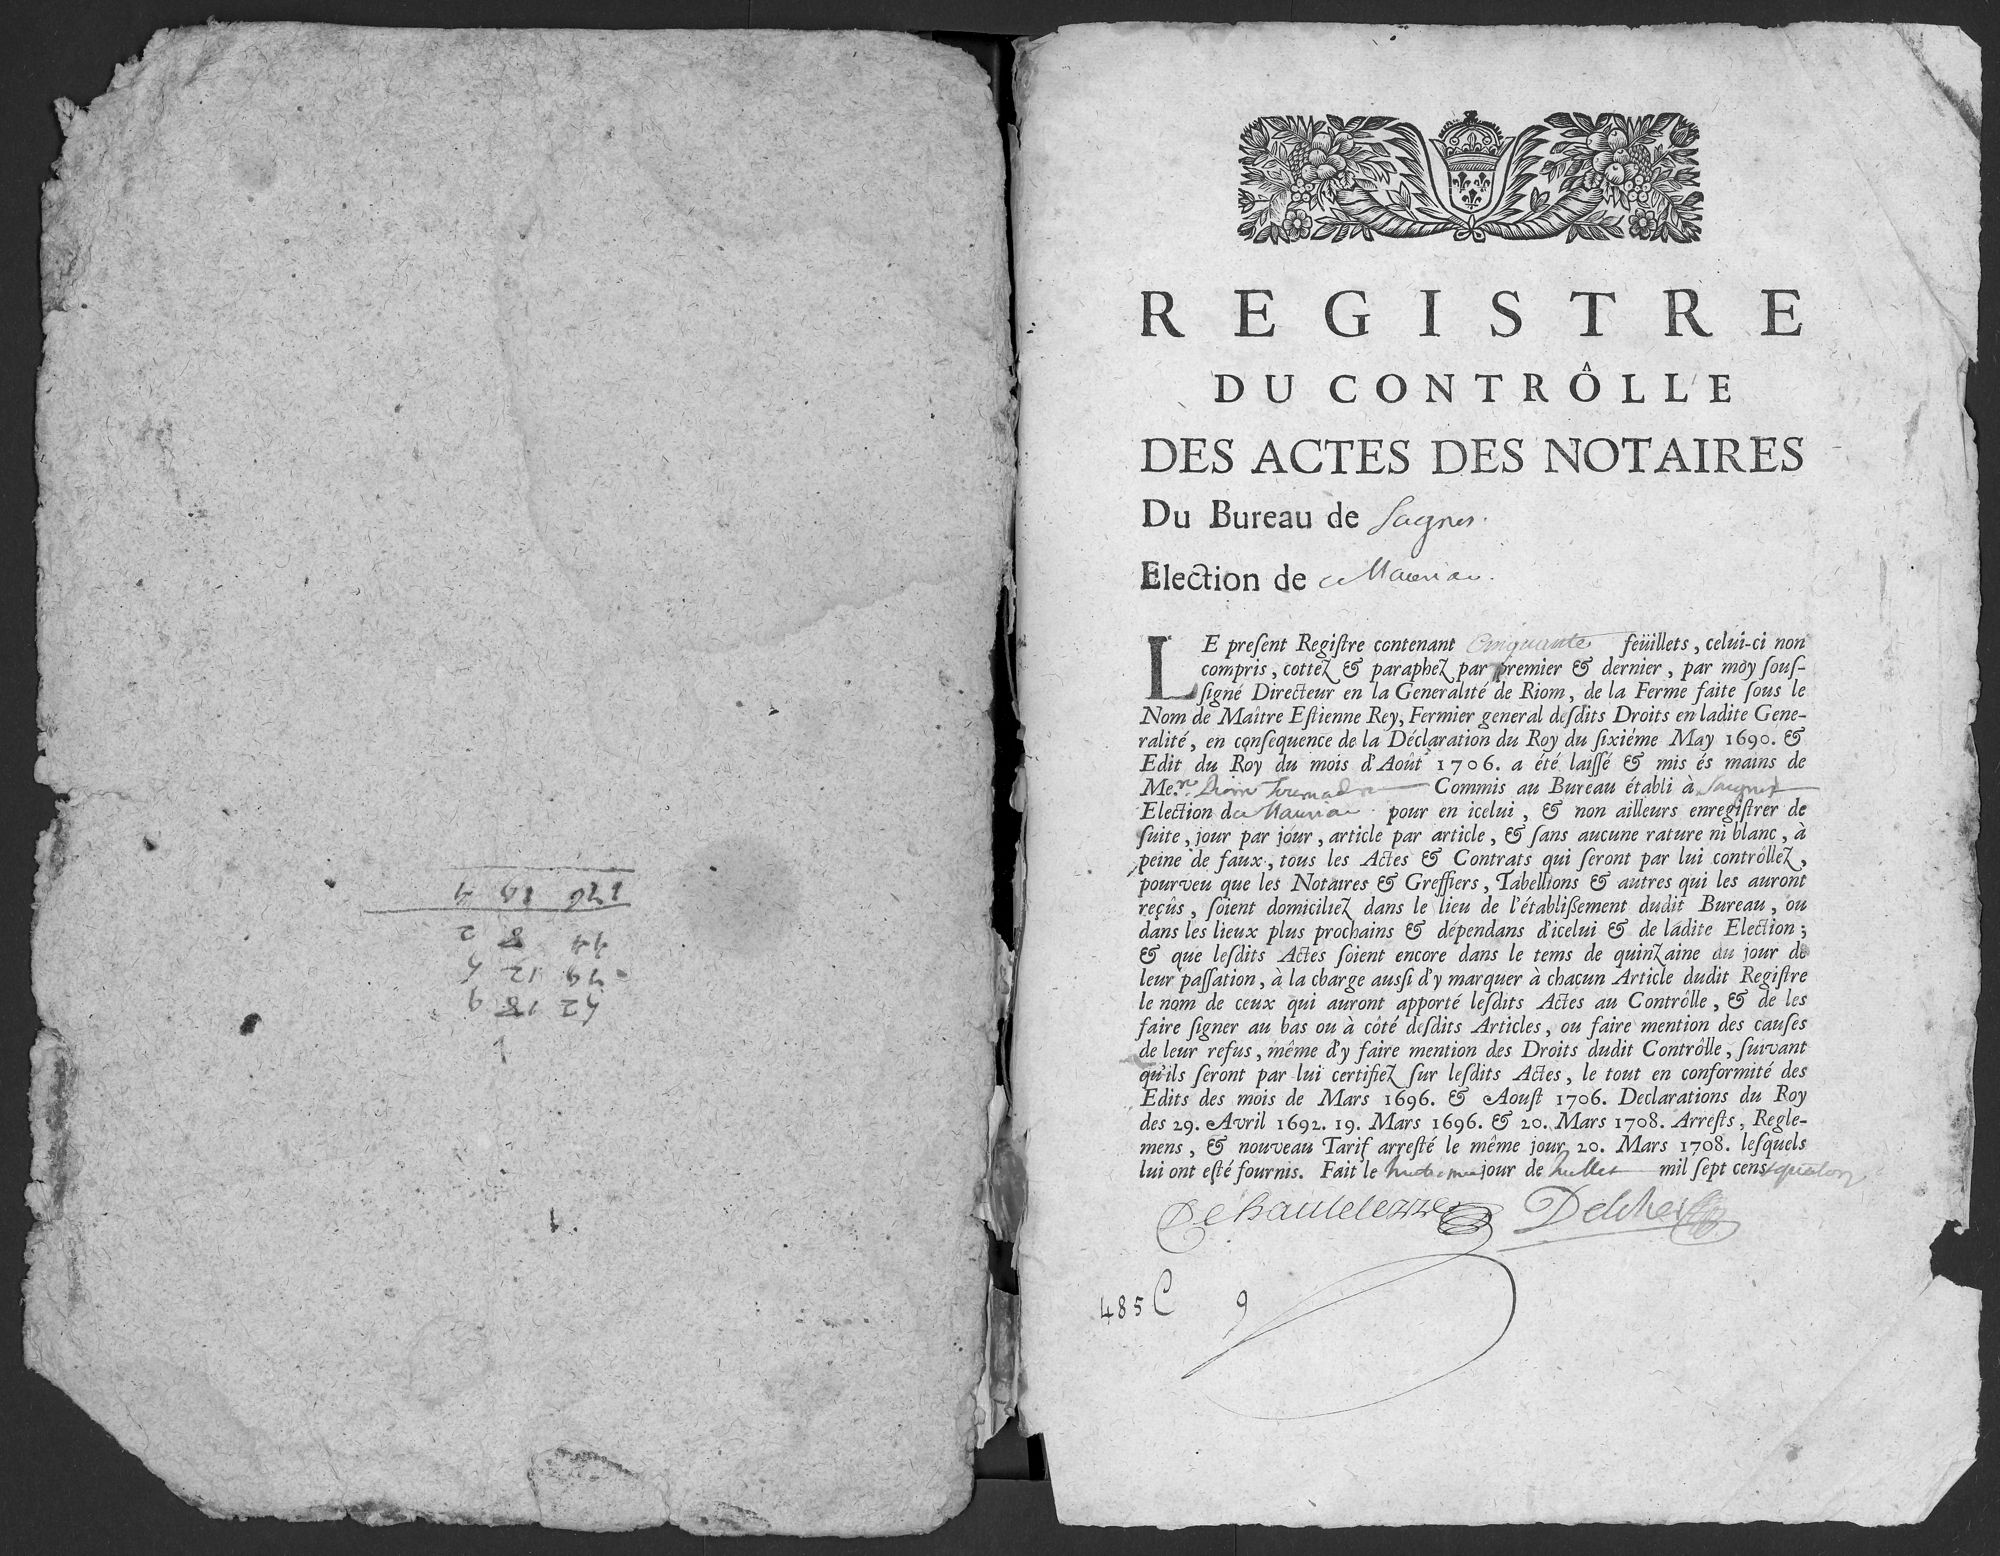 52 18 9
79 12 5
44 8 2
176 19 4
1
REGISTRE
DU CONTRÔLLE
DES ACTES DES NOTAIRES
Du Bureau de Sagnes.
Election de Mauriac.
LE preſent Regiſtre contenant Cinquante feüillets, celui-ci non
compris, cottez & paraphez par premier & dernier, par moy ſouſ-
ſigné Directeur en la Generalité de Riom, de la Ferme faite ſous le
Nom de Maître Eſtienne Rey, Fermier general deſdits Droits en ladite Gene-
ralité, en conſequence de la Déclaration du Roy du ſixiéme May 1690. &
Edit du Roy du mois d'Août 1706. a été laiſſé & mis és mains de
Me. Commis au Bureau établi à Saignes
Election de Mauriac pour en icelui, & non ailleurs enregiſtrer de
ſuite, jour par jour, article par article, & ſans aucune rature ni blanc, à
peine de faux, tous les Actes & Contrats qui ſeront par lui contrôllez,
pourveu que les Notaires & Greffiers, Tabellions & autres qui les auront
reçûs, ſoient domiciliez dans le lieu de l'établiſſement dudit Bureau, ou
dans les lieux plus prochains & dépendans d'icelui & de ladite Election;
& que leſdits Actes ſoient encore dans le tems de quinzaine du jour de
leur paſſation, à la charge auſſi d'y marquer à chacun Article dudit Regiſtre
le nom de ceux qui auront apporté leſdits Actes au Contrôlle, & de les
faire ſigner au bas ou à côté deſdits Articles, ou faire mention des cauſes
de leur refus, même d'y faire mention des Droits dudit Contrôlle, ſuivant
qu'ils ſeront par lui certifiez ſur leſdits Actes, le tout en conformité des
Edits des mois de Mars 1696. & Aouſt 1706. Declarations du Roy
des 29. Avril 1692. 19. Mars 1696. & 20. Mars 1708. Arreſts, Regle-
mens, & nouveau Tarif arreſté le même jour 20. Mars 1708. leſquels
lui ont eſté fournis. Fait le jour de Juillet mil ſept cens quatorze
Dehauteterre Delcher
485 C 9